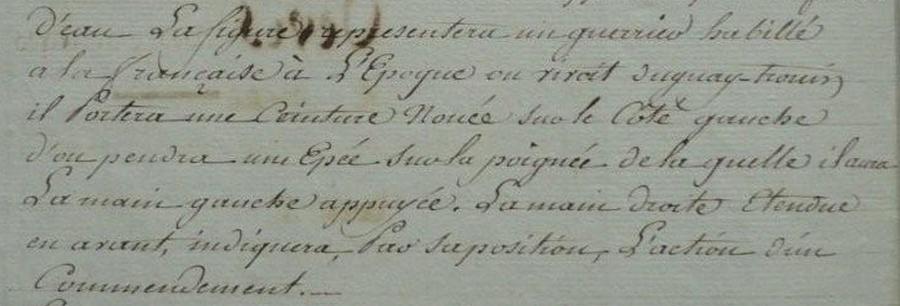 D'eau La figure representera un guerrier habillé
a la française à L'Epoque ou vivoit duguay-trouin,
il Portera une Ceinture Nouée sur le Côté gauche
d'ou pendra une Epée sur la poignée de la quelle il aura
La main gauche appuyée. La main droite Etendue
en avant, indiquera, Par sa position, L'action d'un
Commendement.—